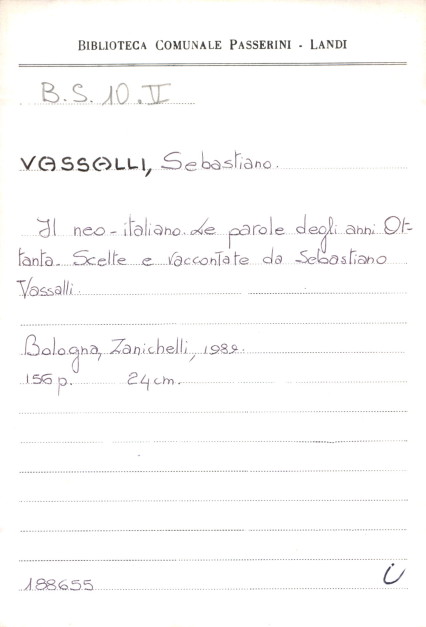 BIBLIOTECA COMUNALE PASSERINI - LANDI
B.S. 10. II
VASSALLI, Sebastiano.
Il neo-italiano. Le parole degli anni Ot-
tanta. Scelte e raccontate da Sebastiano
Vassalli.
Bologna, Zanichelli, 1989.
156 p. 24 cm.
188655